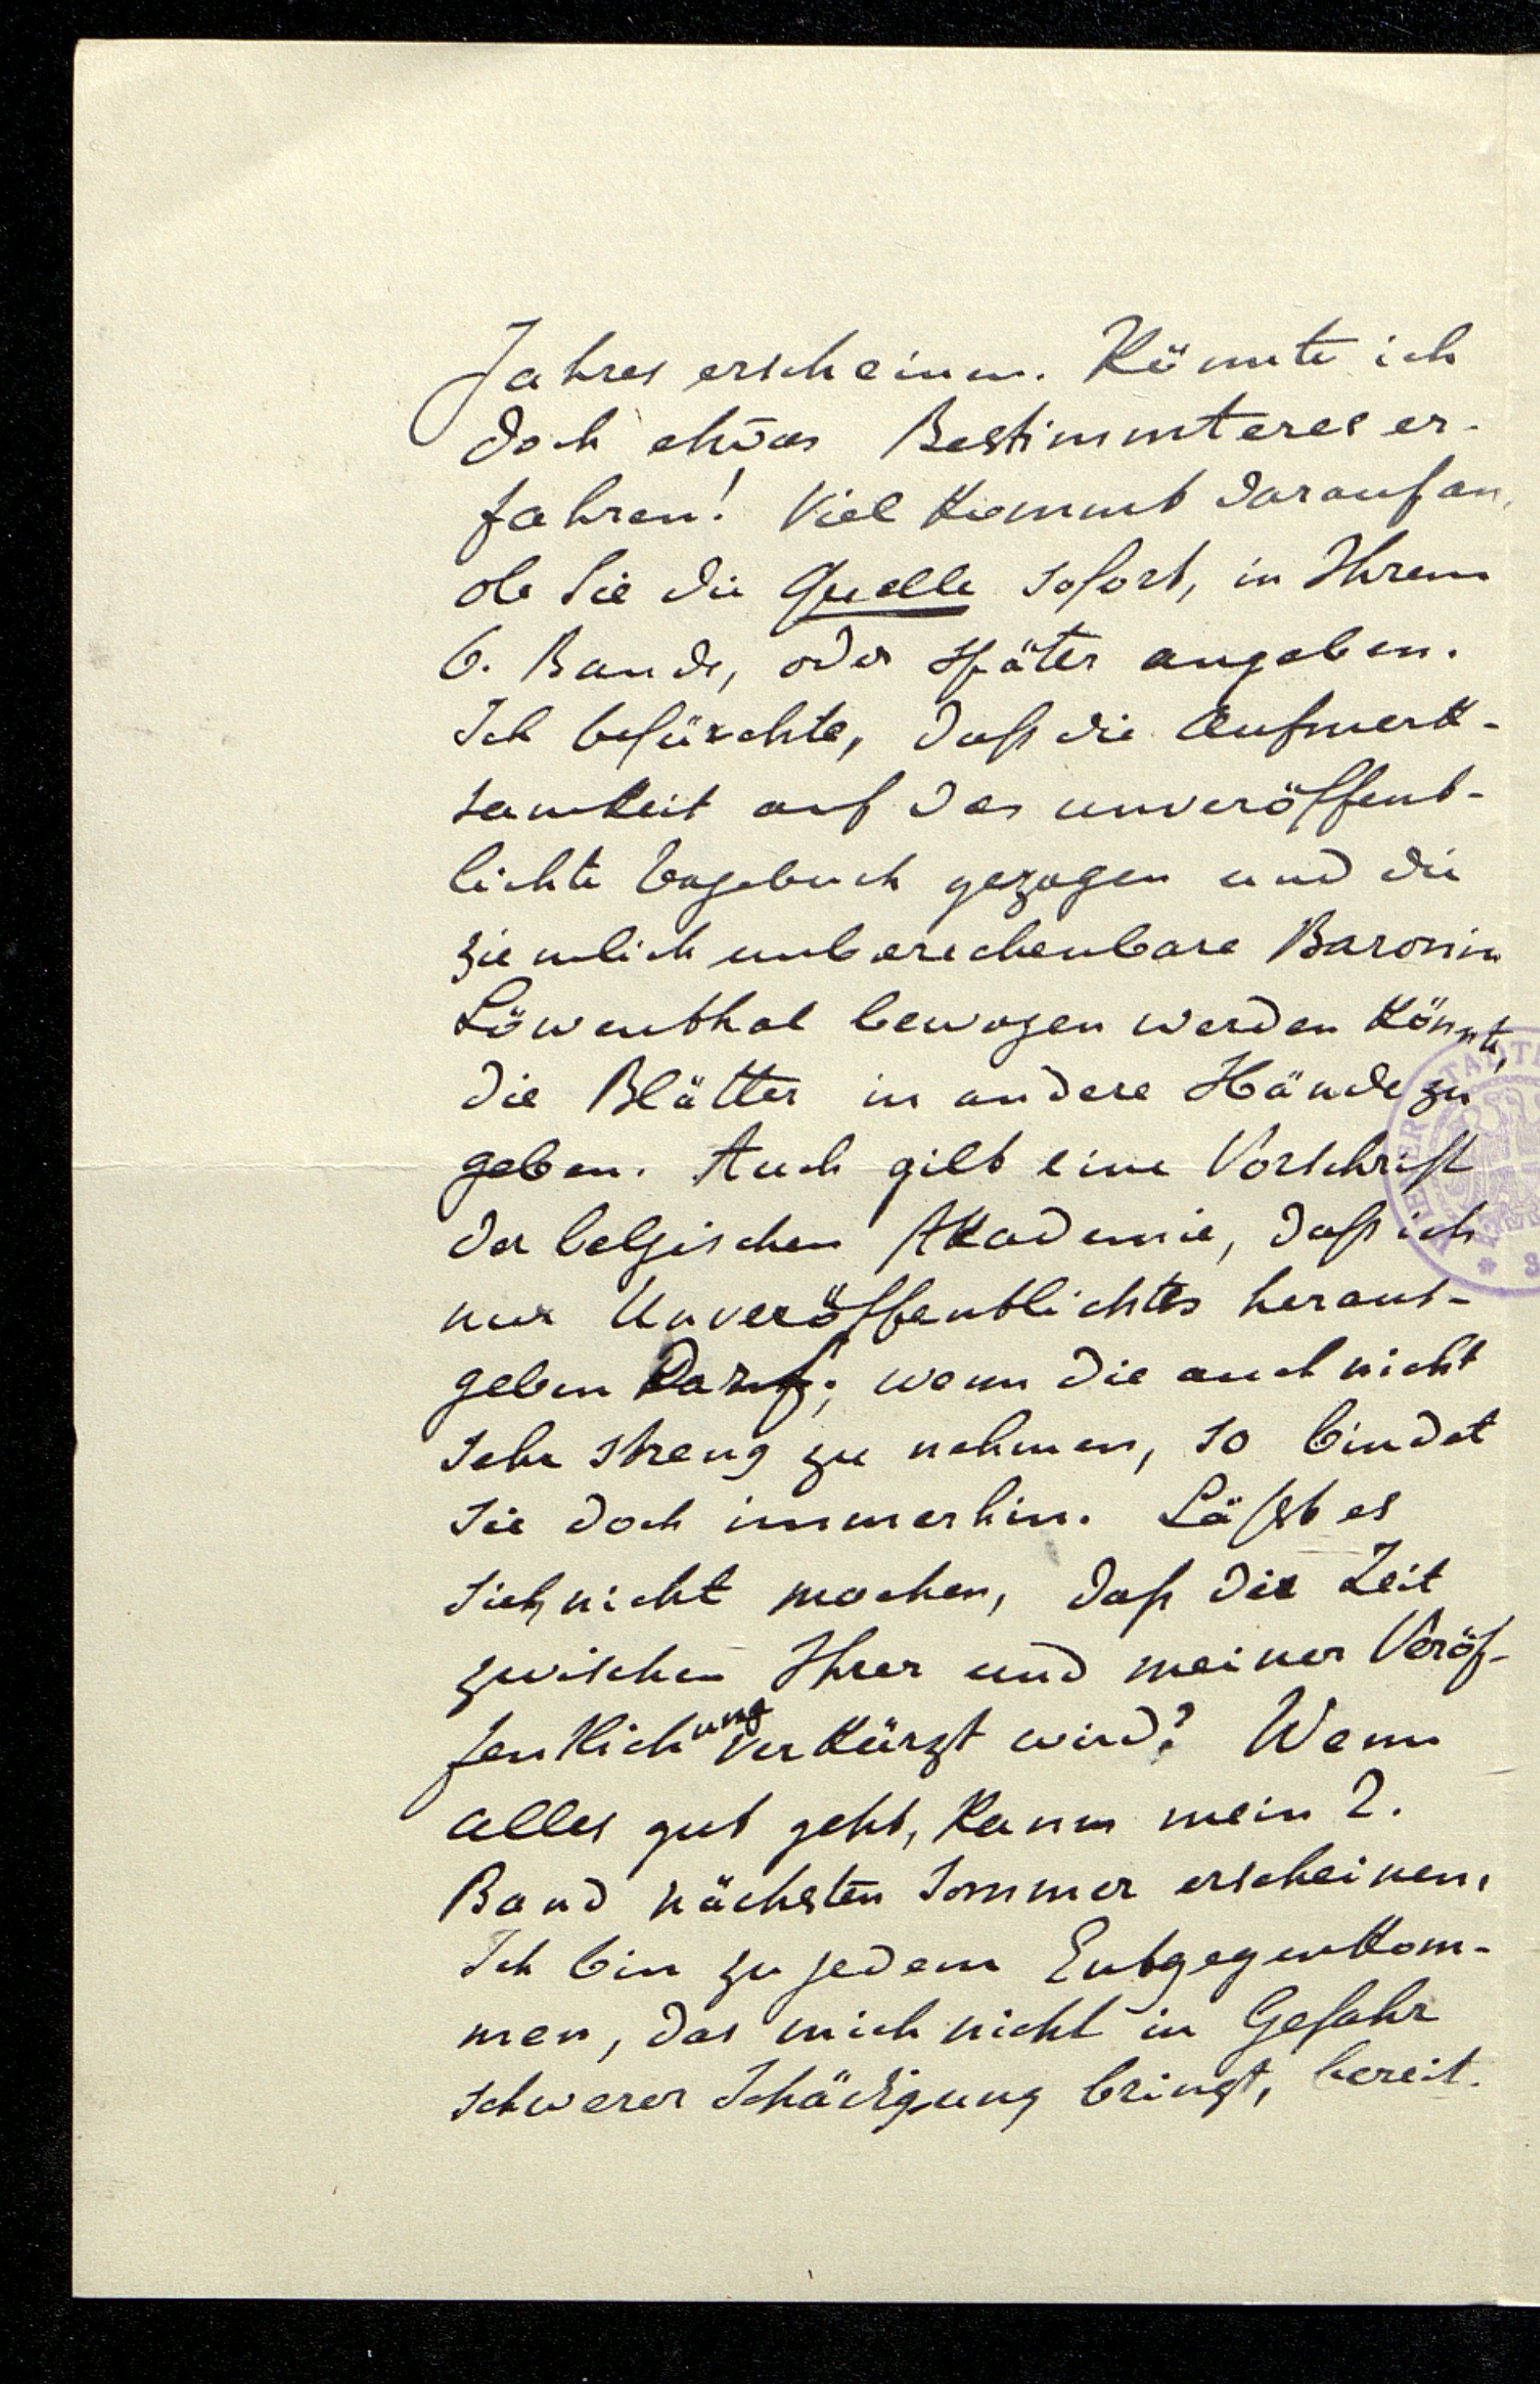 Jahres erscheinen. Könnte ich
doch etwas Bestimmteres er-
fahren! Viel kommt darauf an,
ob Sie die Quelle sofort, in Ihrem
6. Bande, oder später angeben.
Ich befürchte, daß die Aufmerk-
samkeit auf das unveröffent-
lichte Tagebuch gezogen und die
ziemlich unberechenbare Baronin
Löwenthal bewogen werden könnte,
die Blätter in andere Hände zu
geben. Auch gilt eine Vorschrift
der belgischen Akademie, daß ich
nur Unveröffentlichtes heraus-
geben darf; wenn die auch nicht
sehr streng zu nehmen, so bindet
sie doch immerhin. Läßt es
sich nicht machen, daß die Zeit
zwischen Ihrer und meiner Veröf-
fentlichung verkürzt wird? Wenn
alles gut geht, kann mein 2.
Band nächsten Sommer erscheinen.
Ich bin zu jedem Entgegenkom-
men, das mich nicht in Gefahr
schwerer Schädigung bringt, bereit.